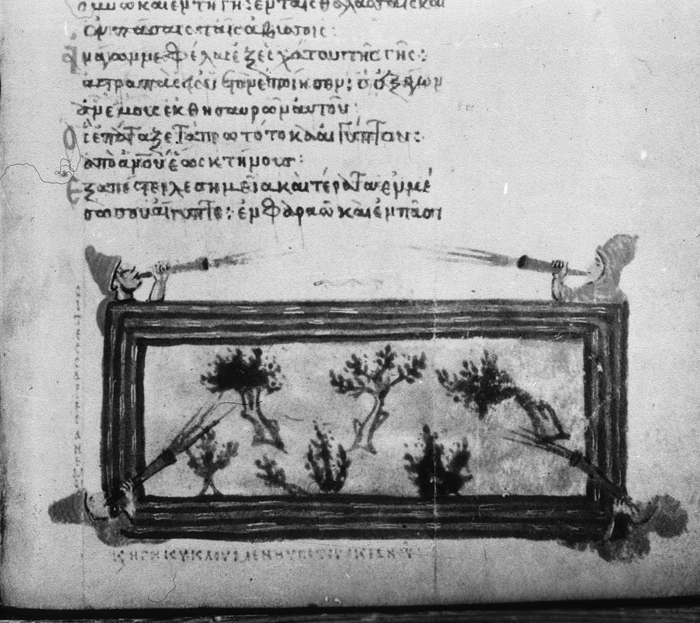 καὶ ἐν τῇ γῇ: ἐν ταῖς θαλάσσαις καὶ
ἐν πάσαις ταῖς ἀβύσσοις:
ἀνάγων νεφέλας ἐξ ἐσχάτου τῆς γῆς:
ἀστραπὰς εἰς ὑετὸν ἐποίησεν: ὁ ἐξάγων
ἀνέμους ἐκ θησαυρῶν αὐτοῦ:
ὃς ἐπάταξε τὰ πρωτότοκα αἰγύπτου:
ἀπὸ ἀνου ἕως κτήνους:
ἐξαπέστειλε σημεῖα καὶ τέρατα ἐν μέ
σω σου αἴγυπτε: ἐν φαραὼ καὶ ἐν πᾶσι
ΤΕCCΑΡΕC ΑΝΕΜΟΙ
Η ΓΗ ΚΥΚΛΟΥΜΕΝΗ ΥΠΟ